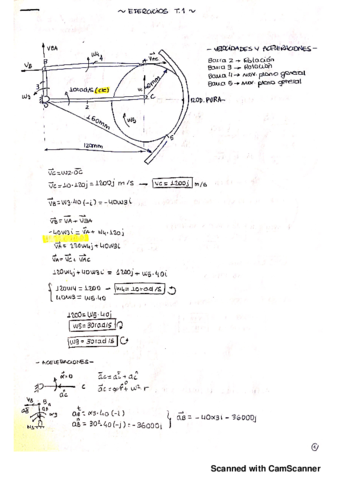 ~ EJERCICIOS T.1 ~
- VELOCIDADES Y ACELERACIONES -
Barra 2 → Rotación
Barra 3 → Rotación
Barra 4 → mov. plano general
Barra 5 → mov. plano general
VBA
VB
W4
VAC
B
A
W2
3
10rad/s (cte)
40mm
2
C
W5
160mm
120mm
ROD. PURA
vc = w2·OC
vc = 10·120j = 1200j m/s → vc = 1200j m/s
vB = w3·40(-i) = -40w3i
vB = vA + vBA
-40w3i = vA + w4·120j
vA = 120w4j + 40w3i
vA = vC + vAC
120w4j + 40w3i = 1200j + w5·40i
120w4 = 1200 → w4 = 10rad/s
40w3 = w5·40
1200 = w5·40j
w5 = 30rad/s
w3 = 30rad/s
- ACELERACIONES -
α=0
ac
C
ac = at + an
vB
B
at B = α3·40(-i)
an B = 30²·40(-j) = -36000j
aB = -40α3i - 36000j
Scanned with CamScanner